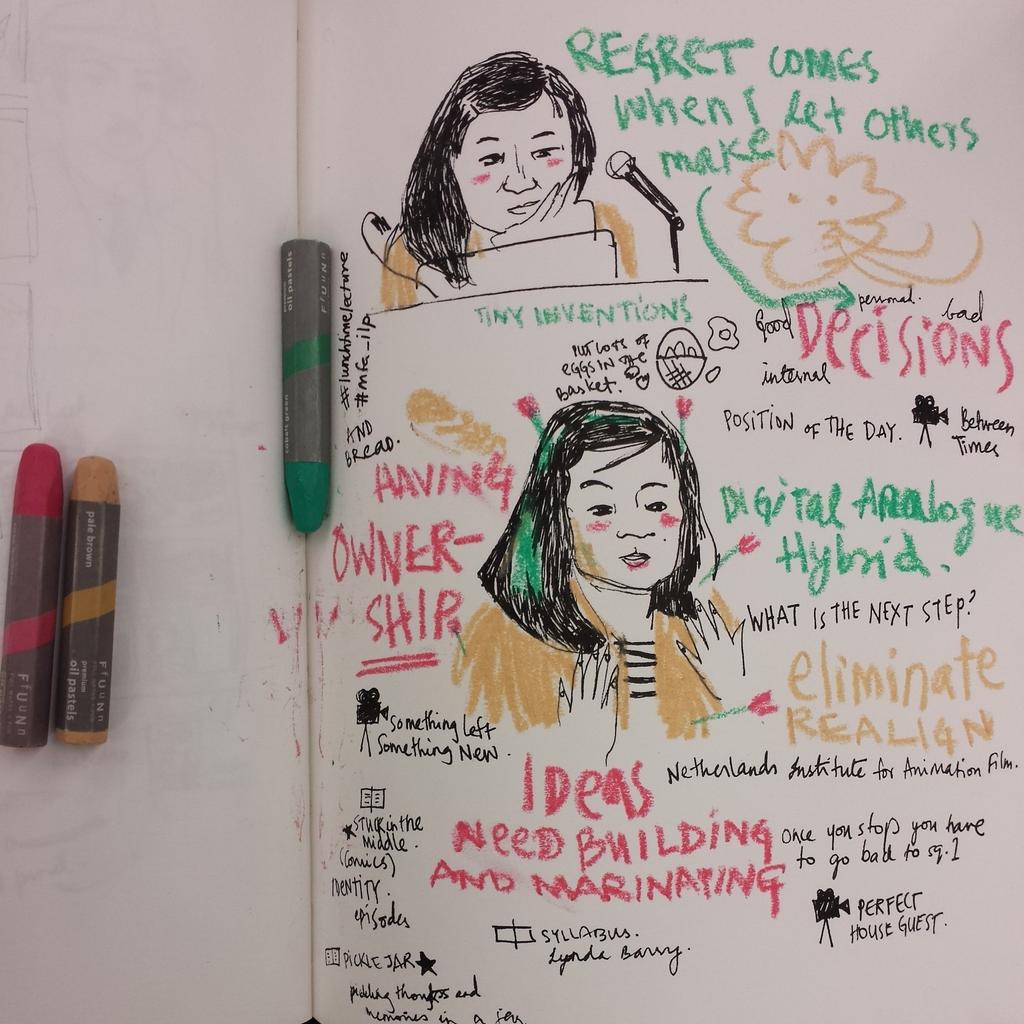 REGRET COMES
When I Let others
make
#lunchtime/lecture
#mfa_ilp
TINY INVENTIONS
Good
personal.
bad
Decisions
internal
PUT LOTS OF
EGGS IN THE
Basket.
AND
BREAD.
POSITION OF THE DAY.
Between
Times
HAVING
OWNER-
SHIP
Digital Analogue
Hybrid.
WHAT IS THE NEXT STEP?
eliminate
REALIGN
Something Left
Something New.
Netherlands Institute for Animation Film.
IDeas
NEED BUILDING
AND MARINATING
once you stop you have
to go back to sq. 1
STUCK in the
middle.
(comics)
identity.
episodes
PERFECT
HOUSE GUEST.
SYLLABUS.
Lynda Barry.
PICKLE JAR
pickling thoughts and
memories in a jar.
cobalt green
oil pastels
FfUuNn
FfUuNn
pale brown
premium
oil pastels
FfUuNn